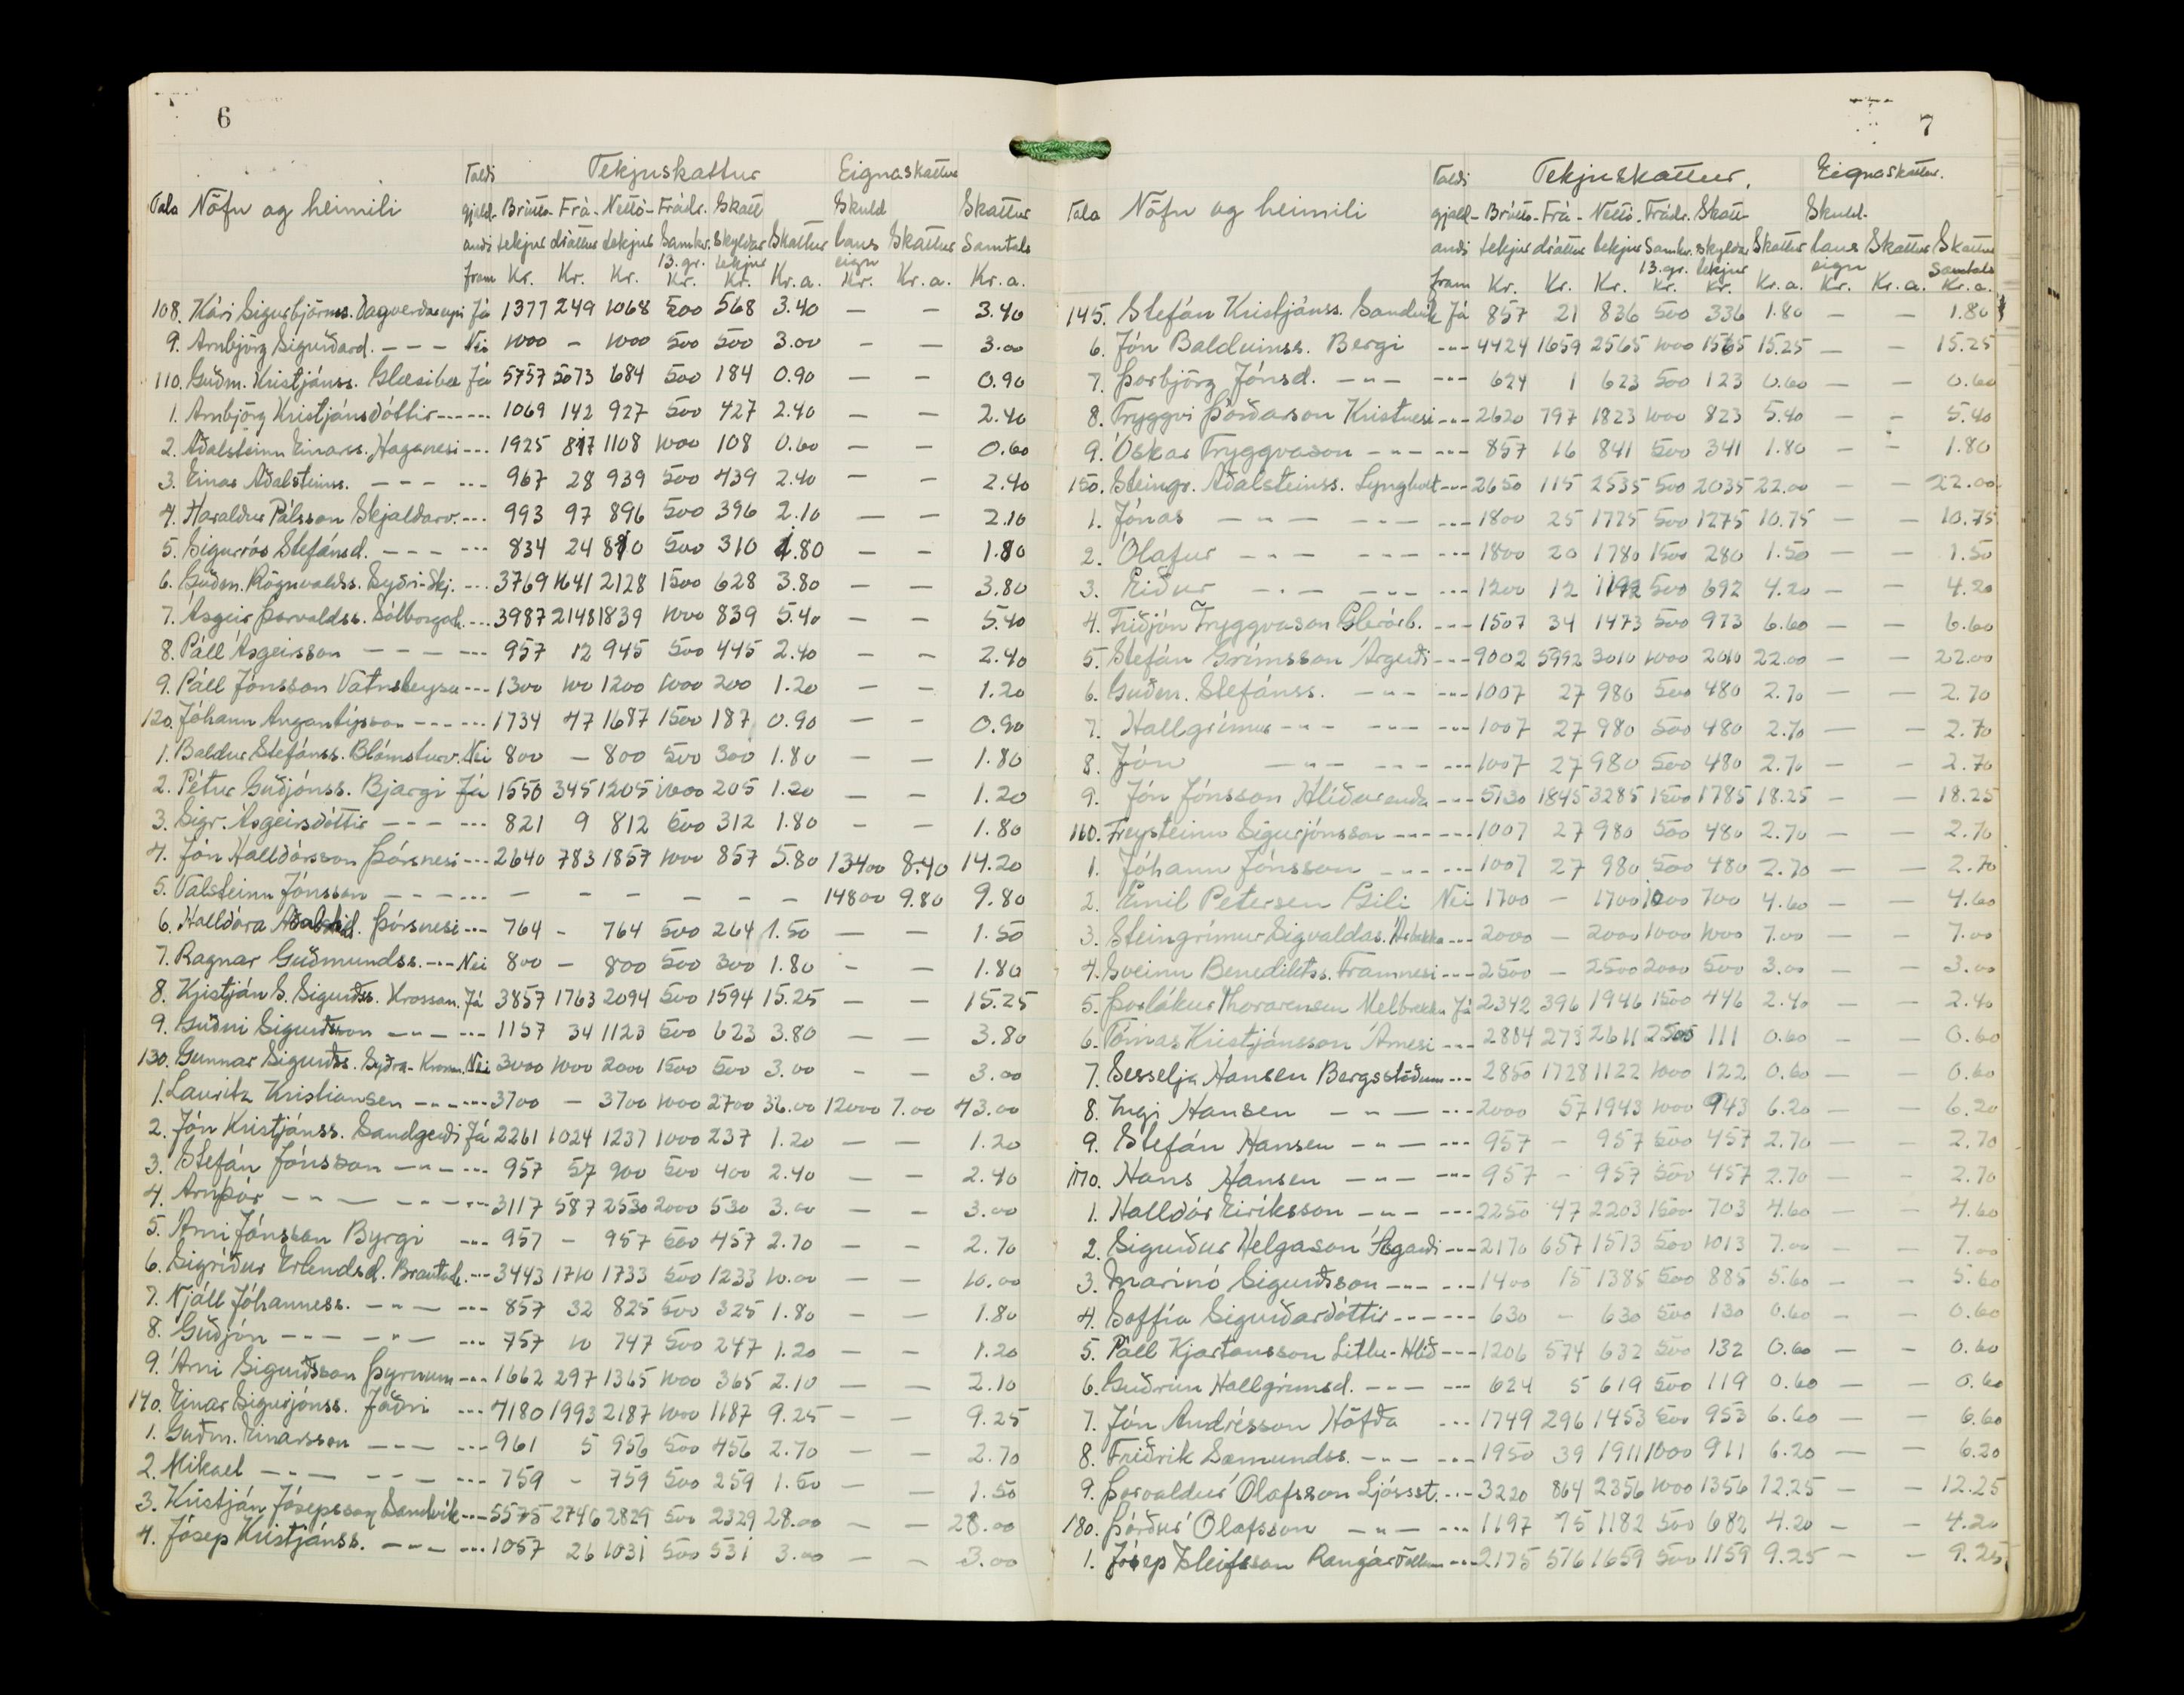 6
Taldi Tekjuskattur Eignaskattur
Tala Nöfn og heimili gjald- Brúttó- Frá- Nettó- Frádr. Skatt Skuld Skattur
andi tekjur dráttur tekjur Samkv. skyldar Skattur laus Skattur Samtals
13. gr. tekjur eign
fram Kr. Kr. Kr. Kr. Kr. Kr. a. Kr. Kr. a. Kr. a.
108. Kári Sigurbjörnss. Dagverðareyri Já 1377 249 1068 500 568 3.40 — — 3.40
9. Arnbjörg Sigurðard. - - - Nei 1000 - 1000 500 500 3.00 - — 3.00
110. Guðm. Kristjánss. Glæsibæ Já 5757 5073 684 500 184 0.90 — — 0.90
1. Arnbjörg Kristjánsdóttir - - - --- 1069 142 927 500 427 2.40 — — 2.40
2. Aðalsteinn Einarss. Haganesi --- 1925 817 1108 1000 108 0.60 — — 0.60
3. Einar Aðalsteins. - - - --- 967 28 939 500 439 2.40 — — 2.40
4. Haraldur Pálsson Skjaldarv. --- 993 97 896 500 396 2.10 — — 2.10
5. Sigurrós Stefánsd. - - - --- 834 24 810 500 310 1.80 — — 1.80
6. Guðm. Rögnvaldss. Syðri-Skj. --- 3769 1641 2128 1500 628 3.80 — — 3.80
7. Ásgeir Þorvaldss. Sólborgarh. --- 3987 2148 1839 1000 839 5.40 — — 5.40
8. Páll Ásgeirsson - - - --- 957 12 945 500 445 2.40 — — 2.40
9. Páll Jónsson Vatnsleysu --- 1300 100 1200 1000 200 1.20 — — 1.20
120. Jóhann Angantýsson - - - --- 1734 47 1687 1500 187 0.90 — — 0.90
1. Baldur Stefánss. Blómsturv. Nei 800 - 800 500 300 1.80 — — 1.80
2. Pétur Guðjónss. Bjargi Já 1550 345 1205 1000 205 1.20 — — 1.20
3. Sigr. Ásgeirsdóttir - - - --- 821 9 812 500 312 1.80 - — 1.80
4. Jón Halldórsson Þórsnesi --- 2640 783 1857 1000 857 5.80 13400 8.40 14.20
5. Valsteinn Jónsson - - - --- - - - - - - 14800 9.80 9.80
6. Halldóra Þórsnesi --- 764 - 764 500 264 1.50 — — 1.50
7. Ragnar Guðmundss. --- Nei 800 - 800 500 300 1.80 - — 1.80
8. Kristján S. Sigurðss. Krossan. Já 3857 1763 2094 500 1594 15.25 — — 15.25
9. Guðni Sigurðsson - - - --- 1157 34 1123 500 623 3.80 — — 3.80
130. Gunnar Sigurðss. Syðra-Krossn. Nei 3000 1000 2000 1500 500 3.00 - — 3.00
1. Lauritz Kristiansen - - - --- 3700 - 3700 1000 2700 36.00 12000 7.00 43.00
2. Jón Kristjánss. Sandgerði Já 2261 1024 1237 1000 237 1.20 — — 1.20
3. Stefán Jónsson - - - --- 957 57 900 500 400 2.40 — — 2.40
4. Arnþór - - - - - - --- 3117 587 2530 2000 530 3.00 — — 3.00
5. Árni Jónsson Byrgi --- 957 - 957 500 457 2.70 — — 2.70
6. Sigríður Erlendsd. Brautarh. --- 3443 1710 1733 500 1233 10.00 — — 10.00
7. Njáll Jóhanness. - - - --- 857 32 825 500 325 1.80 — — 1.80
8. Guðjón - - - - - - --- 757 10 747 500 247 1.20 — — 1.20
9. Árni Sigurðsson Þyrnum --- 1662 297 1365 1000 365 2.10 — — 2.10
140. Einar Sigurjónss. Jaðri --- 4180 1993 2187 1000 1187 9.25 - — 9.25
1. Guðm. Einarsson - - - --- 961 5 956 500 456 2.70 — — 2.70
2. Mikael - - - - - - --- 759 - 759 500 259 1.50 — — 1.50
3. Kristján Jósepsson Sandvík --- 5575 2746 2829 500 2329 28.00 — — 28.00
4. Jósep Kristjánss. - - - --- 1057 26 1031 500 531 3.00 — — 3.00
7
Taldi Tekjuskattur. Eignaskattur.
Tala Nöfn og heimili gjald- Brúttó- Frá- Nettó- Frádr. Skatt- Skuld-
andi tekjur dráttur tekjur Samkv. skyldar Skattur laus Skattur Skattur
13. gr. tekjur eign Samtals
fram Kr. Kr. Kr. Kr. Kr. Kr. a. Kr. Kr. a. Kr. a.
145. Stefán Kristjánss. Sandvík Já 857 21 836 500 336 1.80 — — 1.80
6. Jón Balduinss. Bergi --- 4424 1659 2565 1000 1565 15.25 — — 15.25
7. Þorbjörg Jónsd. - - - --- 624 1 623 500 123 0.60 — — 0.60
8. Tryggvi Þórðarson Kristnesi --- 2620 797 1823 1000 823 5.40 — - 5.40
9. Óskar Tryggvason - - - --- 857 16 841 500 341 1.80 — — 1.80
150. Steingr. Aðalsteinss. Lyngholt --- 2650 115 2535 500 2035 22.00 — — 22.00
1. Jónas - - - - - - --- 1800 25 1775 500 1275 10.75 — — 10.75
2. Ólafur - - - - - - --- 1800 20 1780 1500 280 1.50 — — 1.50
3. Eiður - - - - - - --- 1200 12 1192 500 692 4.20 — — 4.20
4. Friðjón Tryggvason Glerárb. --- 1507 34 1473 500 973 6.60 — — 6.60
5. Stefán Grímsson Árgerði --- 9002 5992 3010 1000 2010 22.00 — — 22.00
6. Guðm. Stefánss. - - - --- 1007 27 980 500 480 2.70 — — 2.70
7. Hallgrímur - - - - - - --- 1007 27 980 500 480 2.70 — — 2.70
8. Jón - - - - - - --- 1007 27 980 500 480 2.70 — — 2.70
9. Jón Jónsson Hlíðarenda --- 5130 1845 3285 1500 1785 18.25 — — 18.25
160. Freysteinn Sigurjónsson - - - --- 1007 27 980 500 480 2.70 — — 2.70
1. Jóhann Jónsson - - - --- 1007 27 980 500 480 2.70 — — 2.70
2. Emil Petersen Gili Nei 1700 - 1700 1000 700 4.60 — — 4.60
3. Steingrímur Sigvaldas. --- 2000 - 2000 1000 1000 7.00 — — 7.00
4. Sveinn Benediktss. Framnesi --- 2500 - 2500 2000 500 3.00 — — 3.00
5. Þorlákur Thorarensen Melbrekku Já 2342 396 1946 1500 446 2.40 — — 2.40
6. Tómas Kristjánsson Árnesi --- 2884 273 2611 2500 111 0.60 — — 0.60
7. Sesselja Hansen Bergsstöðum --- 2850 1728 1122 1000 122 0.60 — — 0.60
8. Ingi Hansen - - - --- 2000 57 1943 1000 943 6.20 — — 6.20
9. Stefán Hansen - - - --- 957 - 957 500 457 2.70 — — 2.70
170. Hans Hansen - - - --- 957 - 957 500 457 2.70 — - 2.70
1. Halldór Eiríksson - - - --- 2250 47 2203 1500 703 4.60 — — 4.60
2. Sigurður Helgason Ásgarði --- 2170 657 1513 500 1013 7.00 — - 7.00
3. Marinó Sigurðsson - - - --- 1400 15 1385 500 885 5.60 — — 5.60
4. Soffía Sigurðardóttir - - - --- 630 - 630 500 130 0.60 — — 0.60
5. Páll Kjartansson Litlu-Hlíð --- 1206 574 632 500 132 0.60 — — 0.60
6. Guðrún Hallgrímsd. - - - --- 624 5 619 500 119 0.60 — — 0.60
7. Jón Andrésson Höfða --- 1749 296 1453 500 953 6.60 — — 6.60
8. Friðrik Sæmundss. - - - --- 1950 39 1911 1000 911 6.20 — — 6.20
9. Þorvaldur Ólafsson Ljósst. --- 3220 864 2356 1000 1356 12.25 — — 12.25
180. Þórður Ólafsson - - - --- 1197 15 1182 500 682 4.20 — — 4.20
1. Jósep Kleifsson Rangárvöllum --- 2175 516 1659 500 1159 9.25 — — 9.25